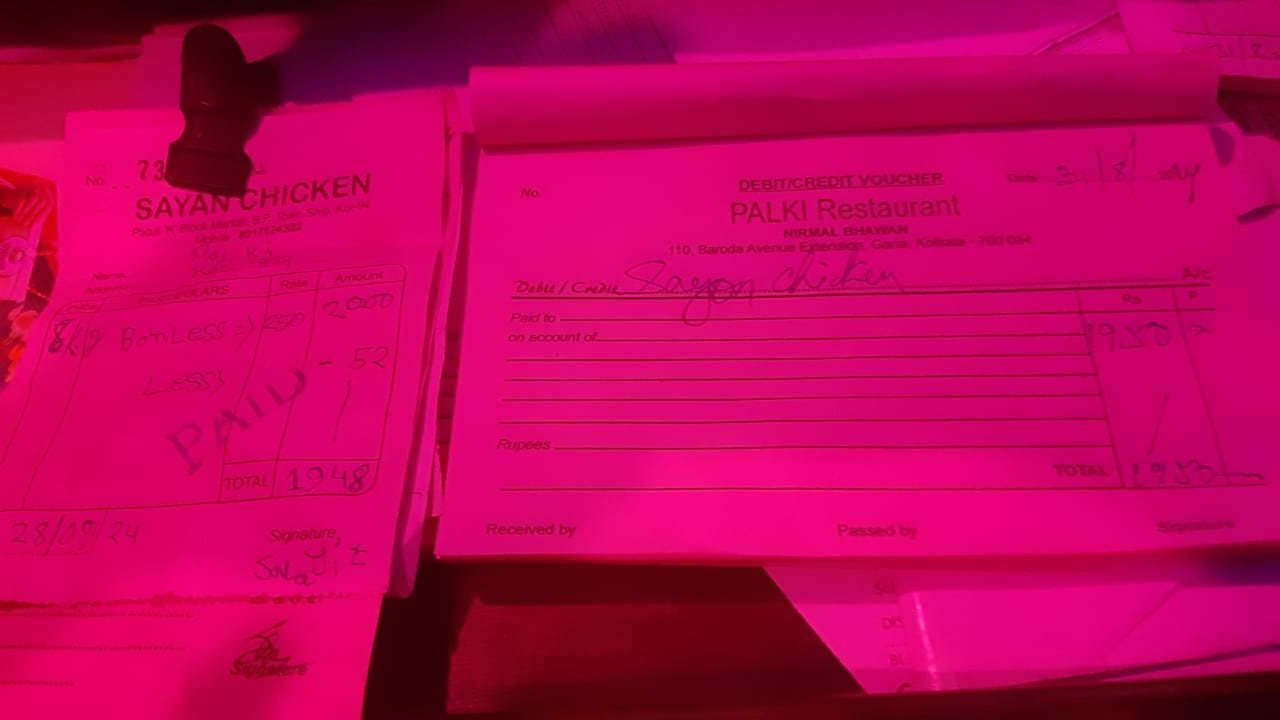 No. 73
SAYAN CHICKEN
Patuli 'K' Block Market, B.P. Town-Ship, Kol-94
Mobile - 8017124322
Name
Address
PARTICULARS Rate Amount
8kg BonLess => 250 2000
Less - 52
PAID
TOTAL 1948
28/09/24
Signature
Signature
No.
DEBIT/CREDIT VOUCHER
Date 31/8/
PALKI Restaurant
NIRMAL BHAWAN
110, Baroda Avenue Extension, Garia, Kolkata - 700 084
Debit / Credit Sayon chicken A/c.
Rs. P.
Paid to
on account of 1950
Rupees
TOTAL 1950
Received by Passed by Signature